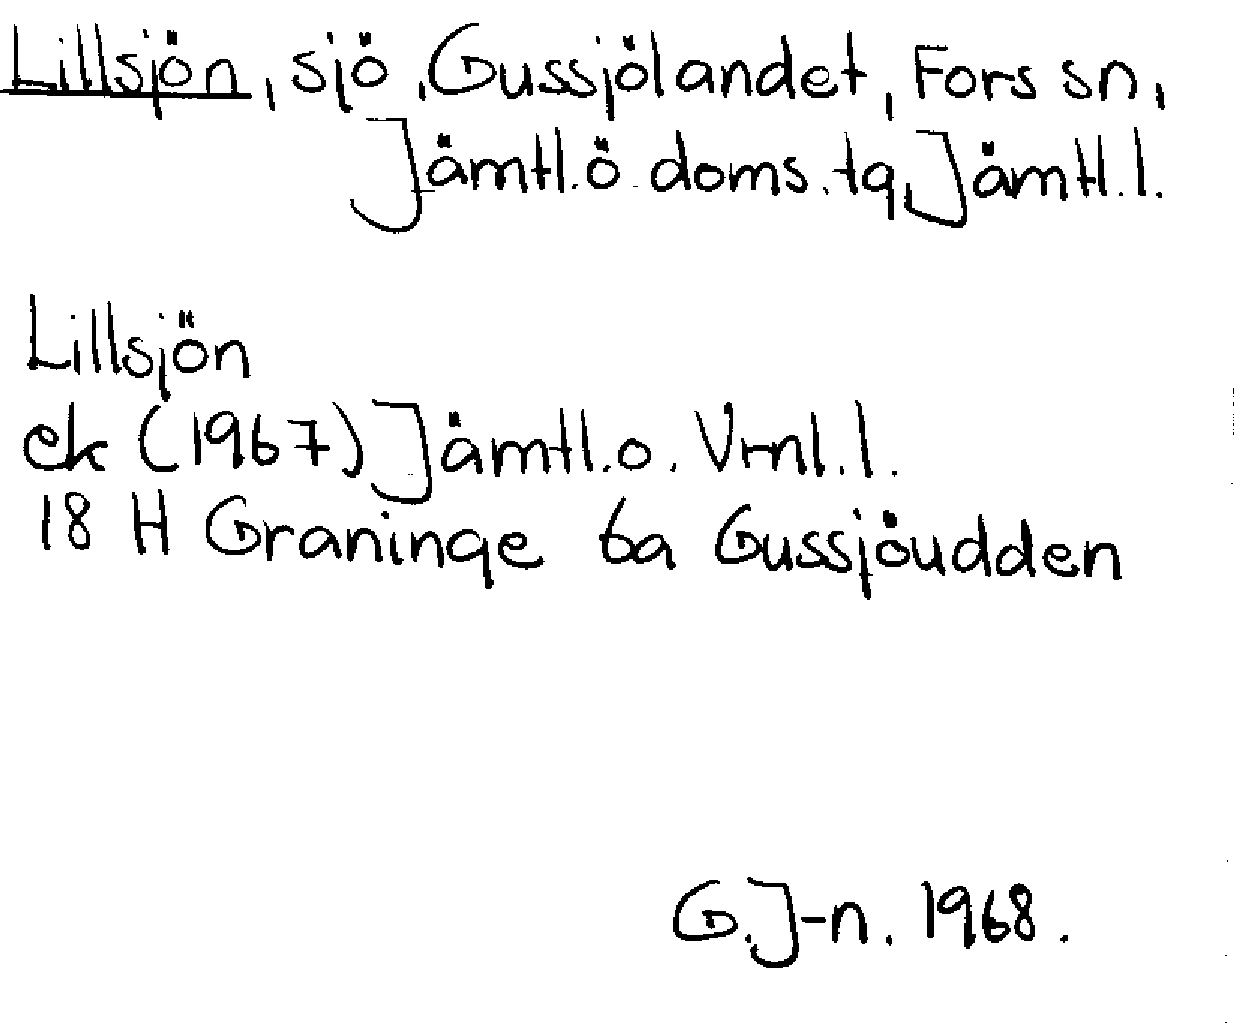 Lillsjön, sjö, Gussjölandet, Fors sn,
Jämtl.ö.doms.tg, Jämtl.l.
Lillsjön
ek (1967) Jämtl.o. Vrnl.l.
18 H Graninge 6a Gussjöudden
G.J-n. 1968.